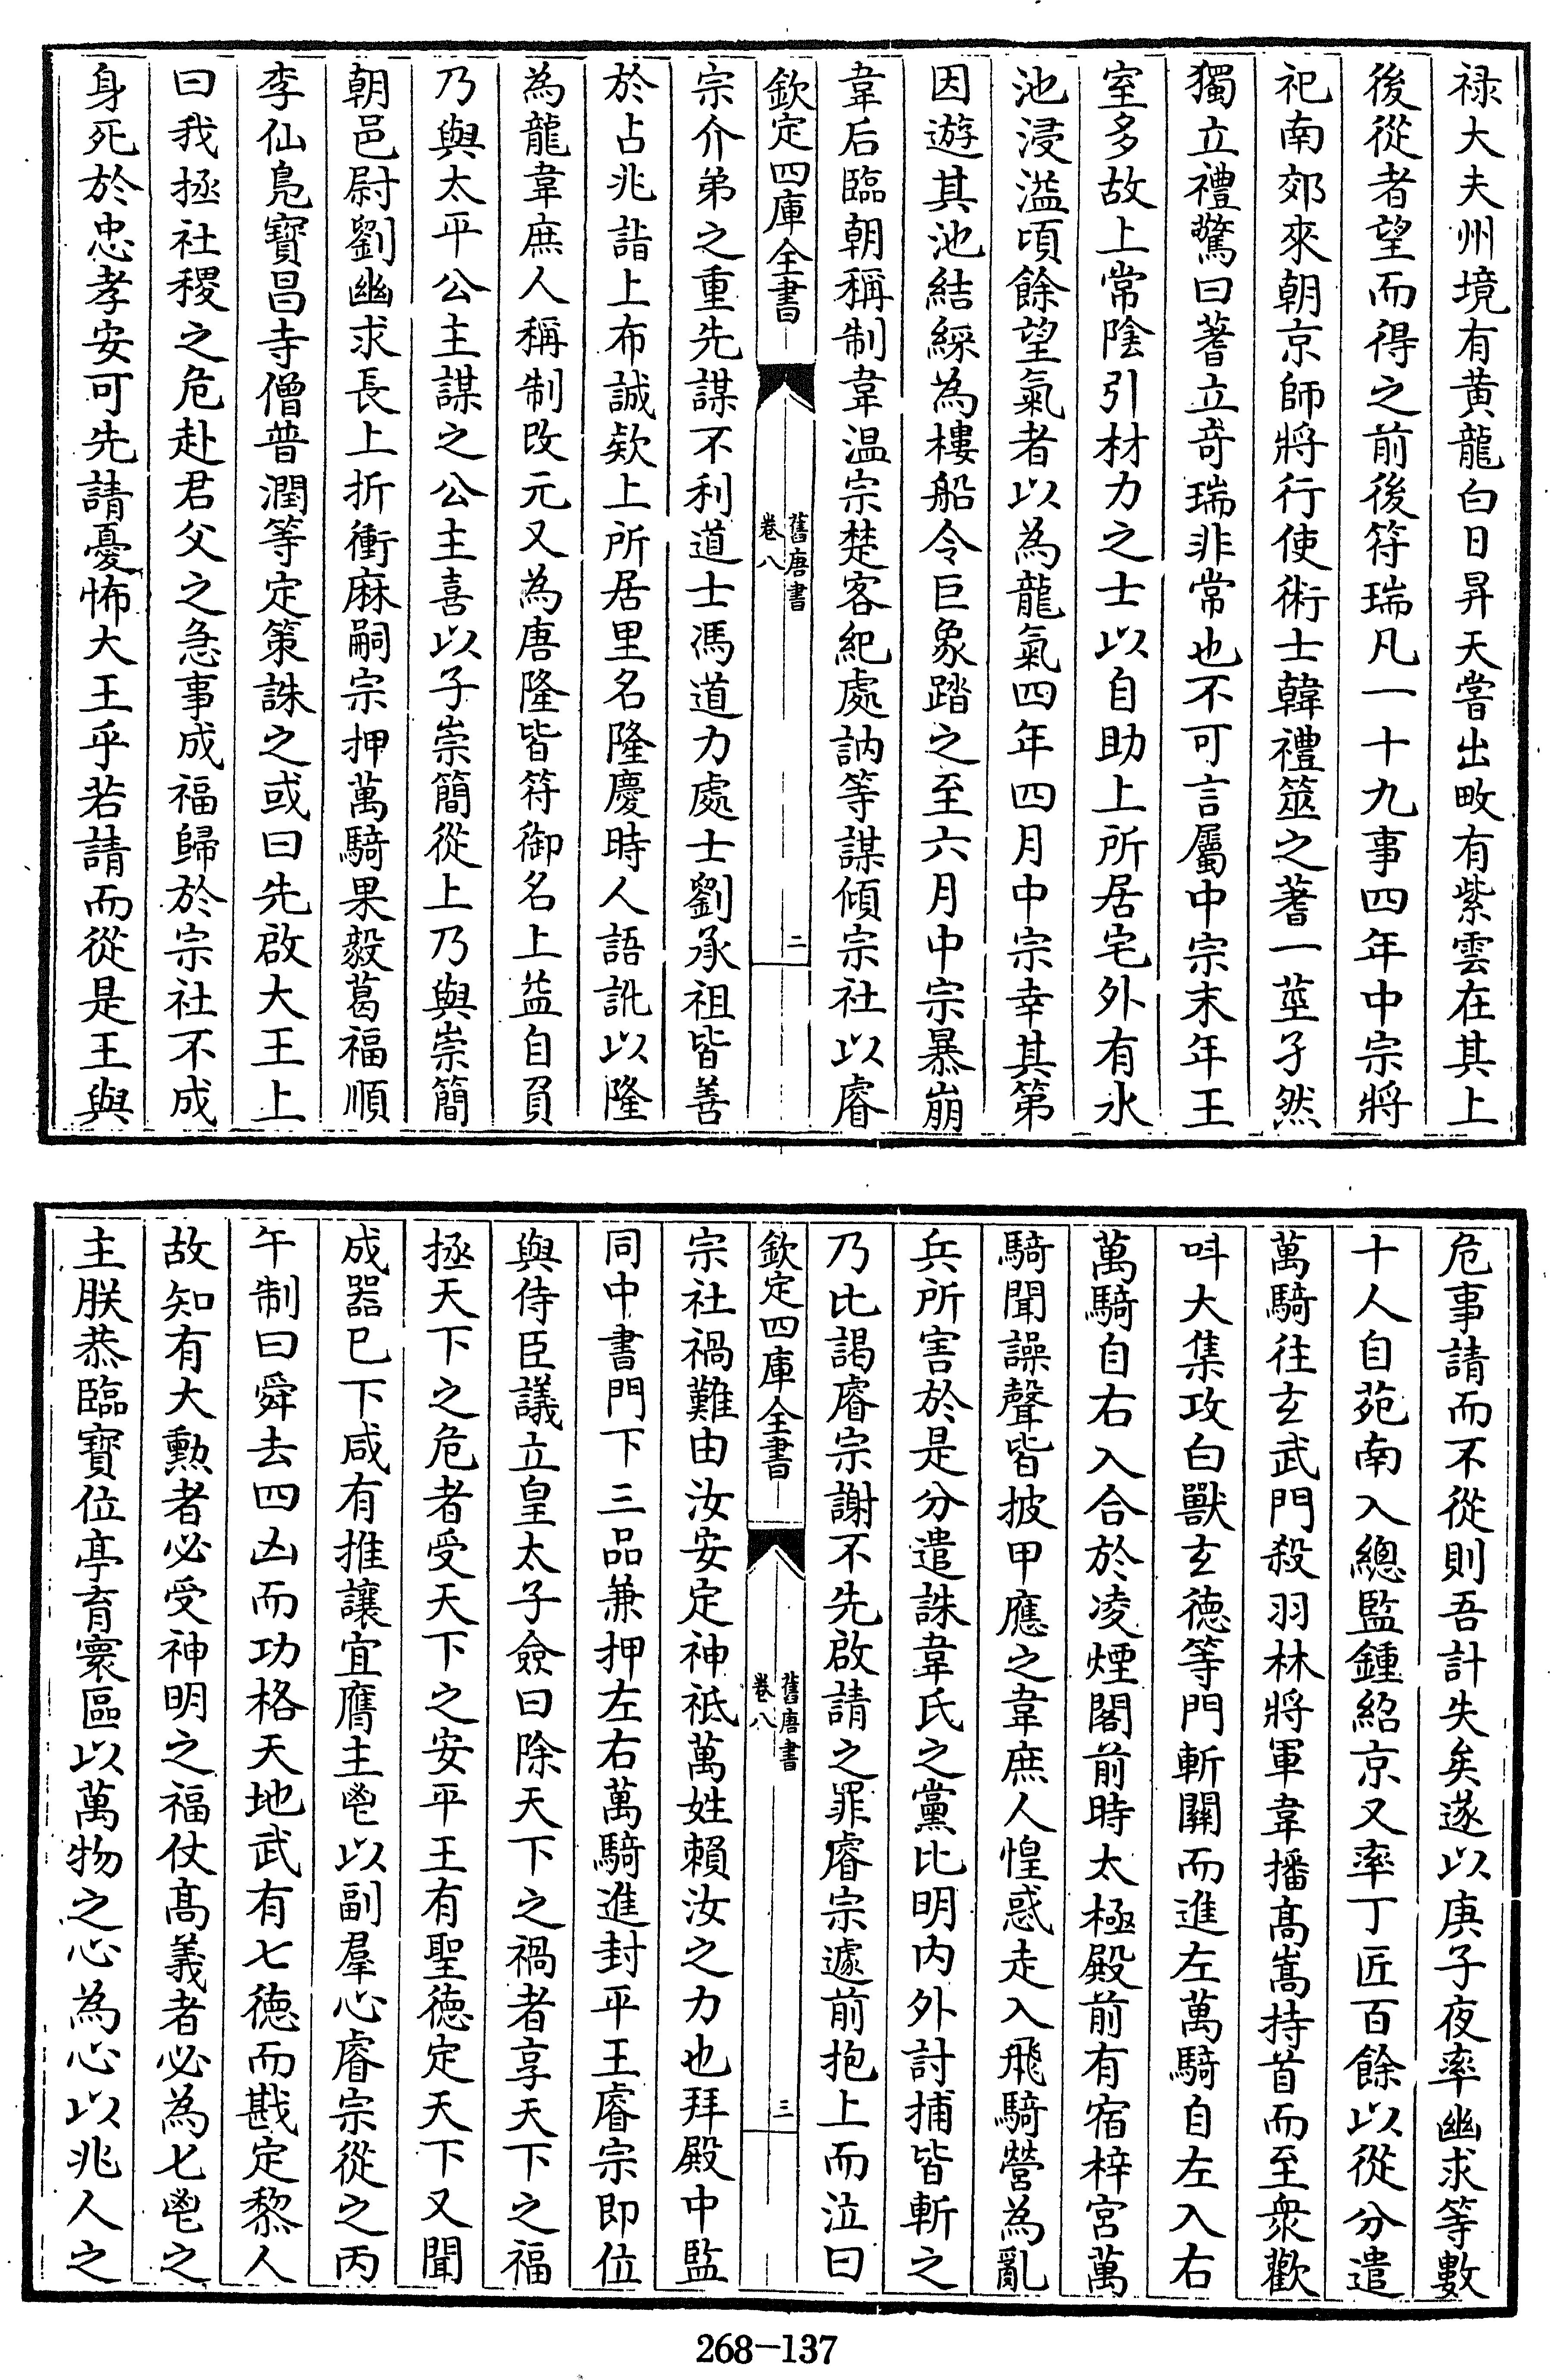 禄大夫州境有黄龍白日昇天嘗出畋有紫雲在其上
後從者望而得之前後符瑞凡一十九事四年中宗將
祀南郊來朝京師將行使術士韓禮筮之蓍一莖孑然
獨立禮驚曰蓍立奇瑞非常也不可言屬中宗末年王
室多故上常陰引材力之士以自助上所居宅外有水
池浸溢頃餘望氣者以為龍氣四年四月中宗幸其第
因遊其池結綵為樓船令巨象踏之至六月中宗暴崩
韋后臨朝稱制韋温宗楚客紀處訥等謀傾宗社以睿
欽定四庫全書
舊唐書
卷八
二
宗介弟之重先謀不利道士馮道力處士劉承祖皆善
於占兆詣上布誠欵上所居里名隆慶時人語訛以隆
為龍韋庶人稱制改元又為唐隆皆符御名上益自負
乃與太平公主謀之公主喜以子崇簡從上乃與崇簡
朝邑尉劉幽求長上折衝麻嗣宗押萬騎果毅葛福順
李仙鳬寶昌寺僧普潤等定策誅之或曰先啟大王上
曰我拯社稷之危赴君父之急事成福歸於宗社不成
身死於忠孝安可先請憂怖大王乎若請而從是王與
危事請而不從則吾計失矣遂以庚子夜率幽求等數
十人自苑南入總監鍾紹京又率丁匠百餘以從分遣
萬騎往玄武門殺羽林將軍韋播髙嵩持首而至衆歡
呌大集攻白獸玄徳等門斬關而進左萬騎自左入右
萬騎自右入合於凌煙閣前時太極殿前有宿梓宮萬
騎聞譟聲皆披甲應之韋庶人惶惑走入飛騎營為亂
兵所害於是分遣誅韋氏之黨比明内外討捕皆斬之
乃比謁睿宗謝不先啟請之罪睿宗遽前抱上而泣曰
欽定四庫全書
舊唐書
卷八
三
宗社禍難由汝安定神祇萬姓賴汝之力也拜殿中監
同中書門下三品兼押左右萬騎進封平王睿宗即位
與侍臣議立皇太子僉曰除天下之禍者享天下之福
拯天下之危者受天下之安平王有聖徳定天下又聞
成器已下咸有推讓宜膺主鬯以副羣心睿宗從之丙
午制曰舜去四凶而功格天地武有七徳而戡定黎人
故知有大勲者必受神明之福仗髙義者必為匕鬯之
主朕恭臨寶位亭育寰區以萬物之心為心以兆人之
268-137